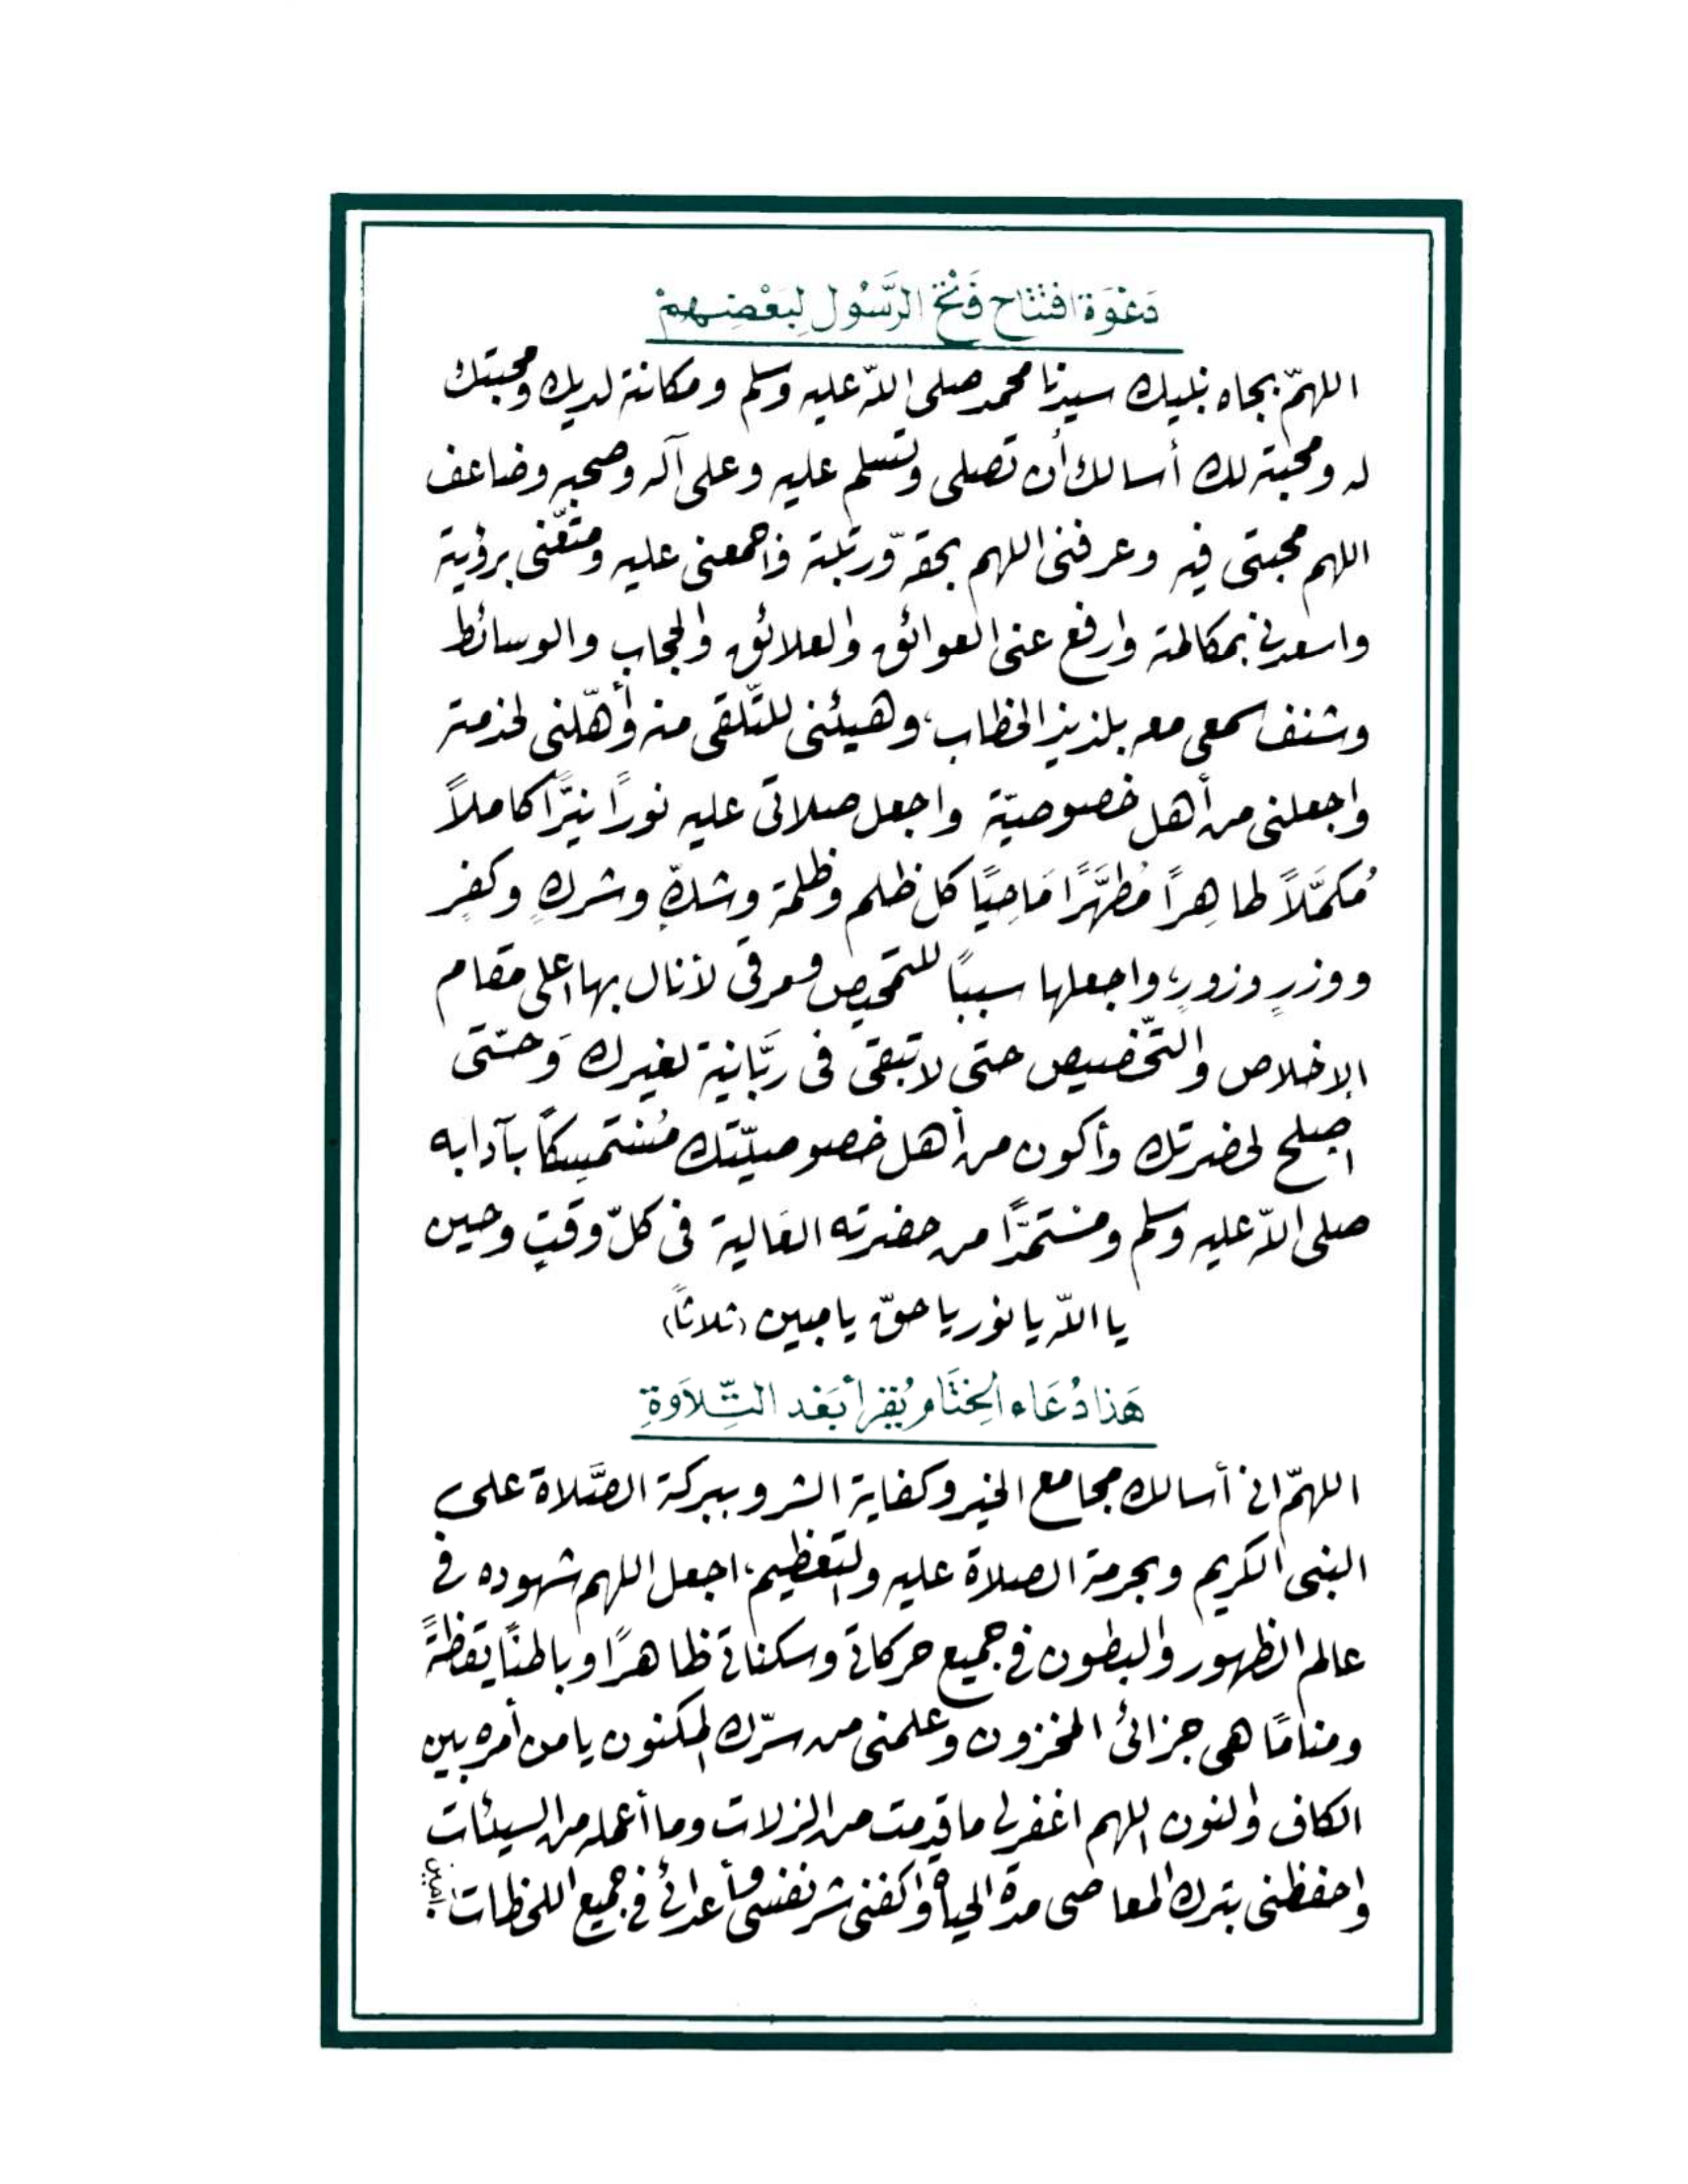 دَعْوَة افتتاح فَتْح الرَّسُول لِبَعْضِهِمْ
اللهمّ بجاه نبيك سيدنا محمد صلى اللّه عليه وسلم ومكانته لديك ومحبتك
له ومحبته لك أسالك أن تصلى وتسلم عليه وعلى آله وصحبه وضاعف
اللهم محبتى فيه وعرفنى اللهم بحقه ورتبته واجمعنى عليه ومتّعنى برؤيته
واسعدنى بمكالمته وارفع عنى العوائق والعلائق والحجاب والوسائط
وشنف سمعى معه بلذيذ الخطاب، وهيئنى للتّلقى منه وأهّلنى لخدمته
واجعلنى من أهل خصوصيّته واجعل صلاتى عليه نورًا نيّرًا كاملاً
مُكمَّلاً طاهِرًا مُطهَّرًا مَاحِيًا كل ظلم وظلمة وشكٍّ وشركٍ وكفرٍ
ووزرٍ وزورٍ، واجعلها سببًا للتمحيص ومرقى لأنال بها اعلى مقام
الإخلاص والتّخصيص حتى لا تبقى فى ربَّانية لغيرك وَحتّى
اصلح لحضرتك وأكون من أهل خصوصيّتك مُستمسِكًا بآدابه
صلى اللّه عليه وسلم ومستمدًّا من حضرته العَالية فى كلّ وقتٍ وحين
يا اللّه يا نور يا حقّ يا مبين (ثلاثاً)
هَذا دُعَاء الخِتَام يُقرأ بَعْد التِّلاَوَةِ
اللهمّ انى أسالك مجامع الخير وكفاية الشر وببركة الصَّلاة على
النبى الكريم وبحرمة الصلاة عليه والتعظيم، اجعل اللهم شهوده فى
عالم الظهور والبطون فى جميع حركاتى وسكناتى ظاهرًا وباطنًا يقظةً
ومنامًا هى جزائى المخزون وعلمنى من سرّك المكنون يا من أمره بين
الكاف والنون اللهم اغفر لى ما قدمت من الزلات وما أعمله من السيئات
واحفظنى بترك المعاصى مدة الحياة واكفنى شر نفسى وأعدائى فى جميع اللحظات: آمين